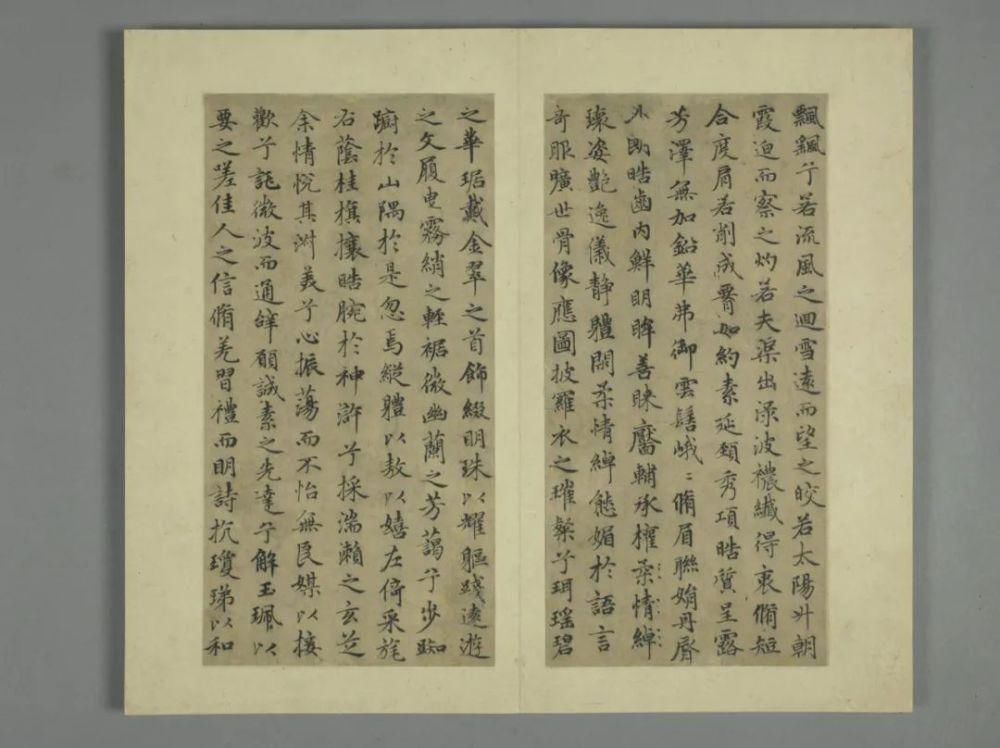 飄飖兮若流風之迴雪遠而望之皎若太陽升朝
霞迫而察之灼若夫渠出淥波襛纖得衷脩短
合度肩若削成腰如約素延頸秀項皓質呈露
芳澤無加鉛華弗御雲髻峨〻脩眉聯娟丹脣
外朗皓齒內鮮明眸善睞靨輔承權柔情綽
瓌姿艷逸儀靜體閑柔情綽態媚於語言
奇服曠世骨像應圖披羅衣之璀粲兮珥瑤碧
之華琚戴金翠之首飾綴明珠以耀軀踐遠遊
之文履曳霧綃之輕裾微幽蘭之芳藹兮步踟
躕於山隅於是忽焉縱體以敖以嬉左倚采旄
右蔭桂旗攘皓腕於神滸兮採湍瀨之玄芝
余情悅其淑美兮心振蕩而不怡無良媒以接
歡兮託微波而通辭願誠素之先達兮解玉珮以
要之嗟佳人之信脩羌習禮而明詩抗瓊珶以和